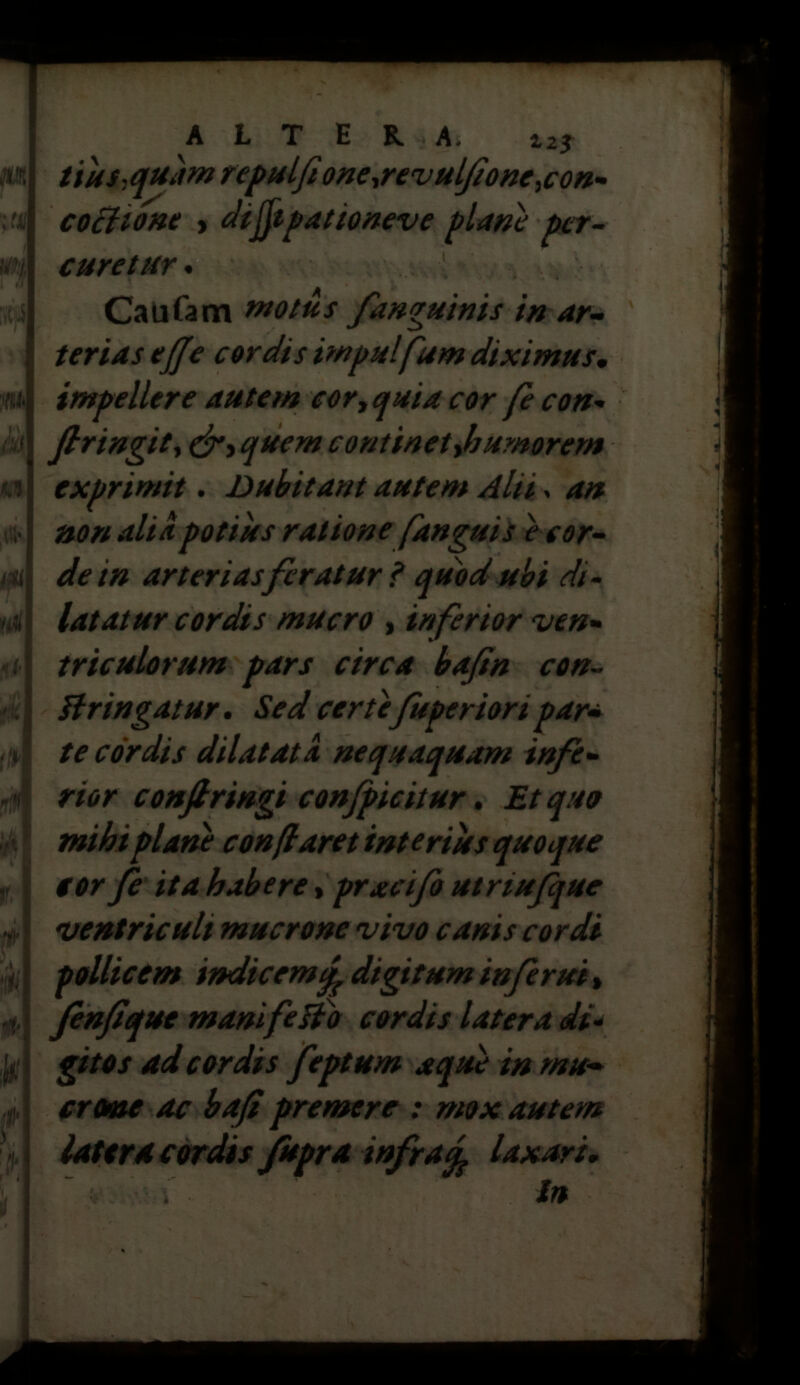 ALTERA. 223
tiùs, quàm repulſione, revulſione, con-
coctione, diſſipationeve planè per-
curetur.
Cauſam motûs ſanguinis in ar-
terias eſſe cordis impulſum diximus.
impellere autem cor, quia cor ſe con-
ſtringit, &, quem continet, humorem
exprimit. Dubitant autem Alii, an
non aliâ potiùs ratione ſanguis è cor-
de in arterias feratur? quòd ubi di-
latatur cordis mucro, inferior ven-
triculorum pars circa baſin con-
ſtringatur. Sed certè ſuperiori par-
te cordis dilatatâ nequaquam infe-
rior conſtringi conſpicitur. Et quo
mihi planè conſtaret interiùs quoque
cor ſe ita habere, præciſo utriuſque
ventriculi mucrone vivo canis cordi
pollicem indicemq; digitum inſerui,
ſenſique manifeſtò cordis latera di-
gitos ad cordis ſeptum æquè in mu-
crone ac baſi premere: mox autem
latera cordis ſupra infraq; laxari.
In